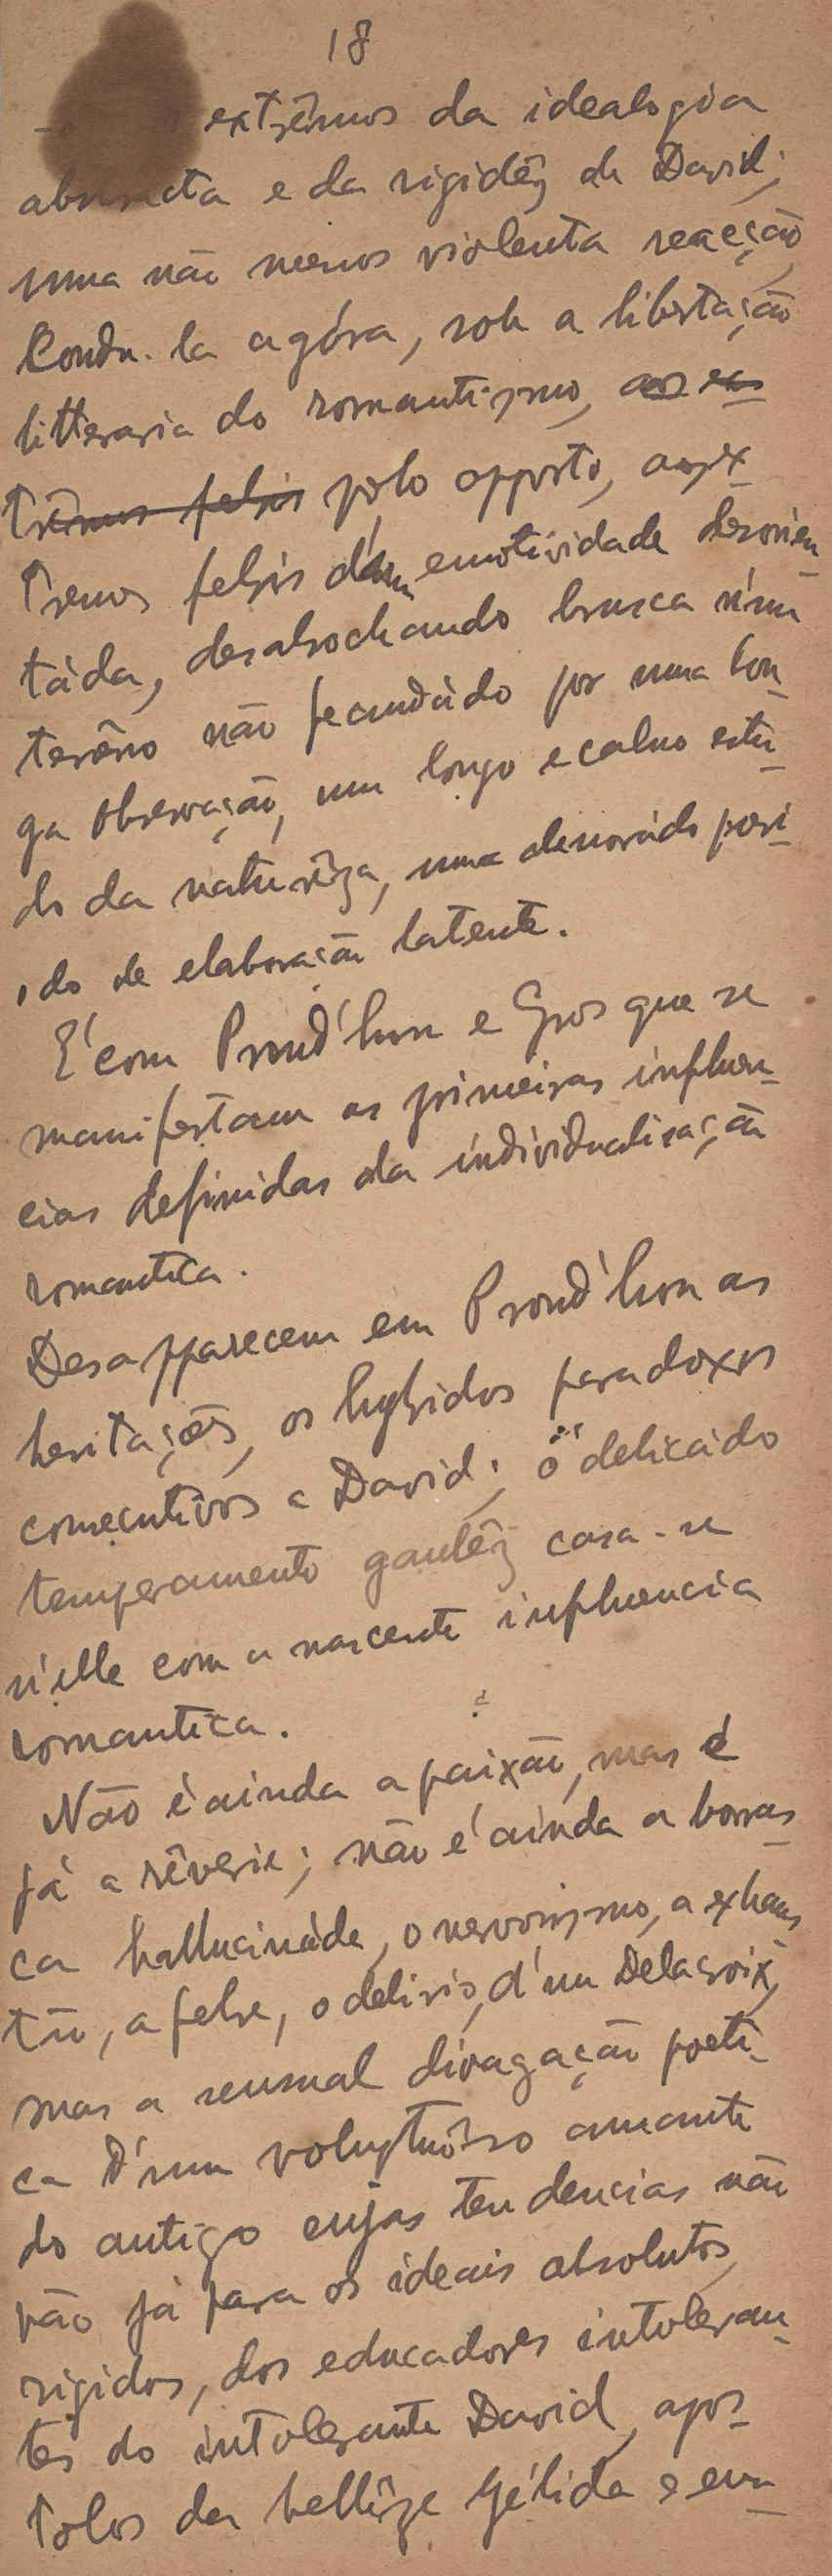 18
extrêmos da idealogia
abstracta e da rigidêz de David;
uma não menos violenta reacção
Condu-la agóra, sob a libertação
litteraria do romantismo, aos ex
trêmos febris pólo opposto, aos ex
tremos febris d'uma emotividade desorien
táda, desabrochando brusca n'um
terêno não fecundádo por uma lon
ga observação, um longo e calmo estu
do da naturêza, uma demoráda peri
odo de elaboração latente.
É com Proud'hon e Gros que se
manifestam as primeiras influen
cias definidas da individualisação
romantica.
Desapparecem em Proud'hon as
hesitações, os hybridos paradoxos
consecutivos a David; o delicádo
temperamento gaulêz casa-se
n'elle com a nascente influencia
romantica.
Não é ainda a paixão, mas é
já a rêverie; não é ainda a borras
ca hallucináda, o nervosismo, a exhaus
tão, a febre, o delirio, d'um Delacroix,
mas a sensual divagação poeti
ca d'um voluptuôso amante
do antigo cujas tendencias não
vão já para os ideais absolutos,
rigidos, dos educadores intoleran
tes do intolerante David, apos
tolos da bellêza gélida e em